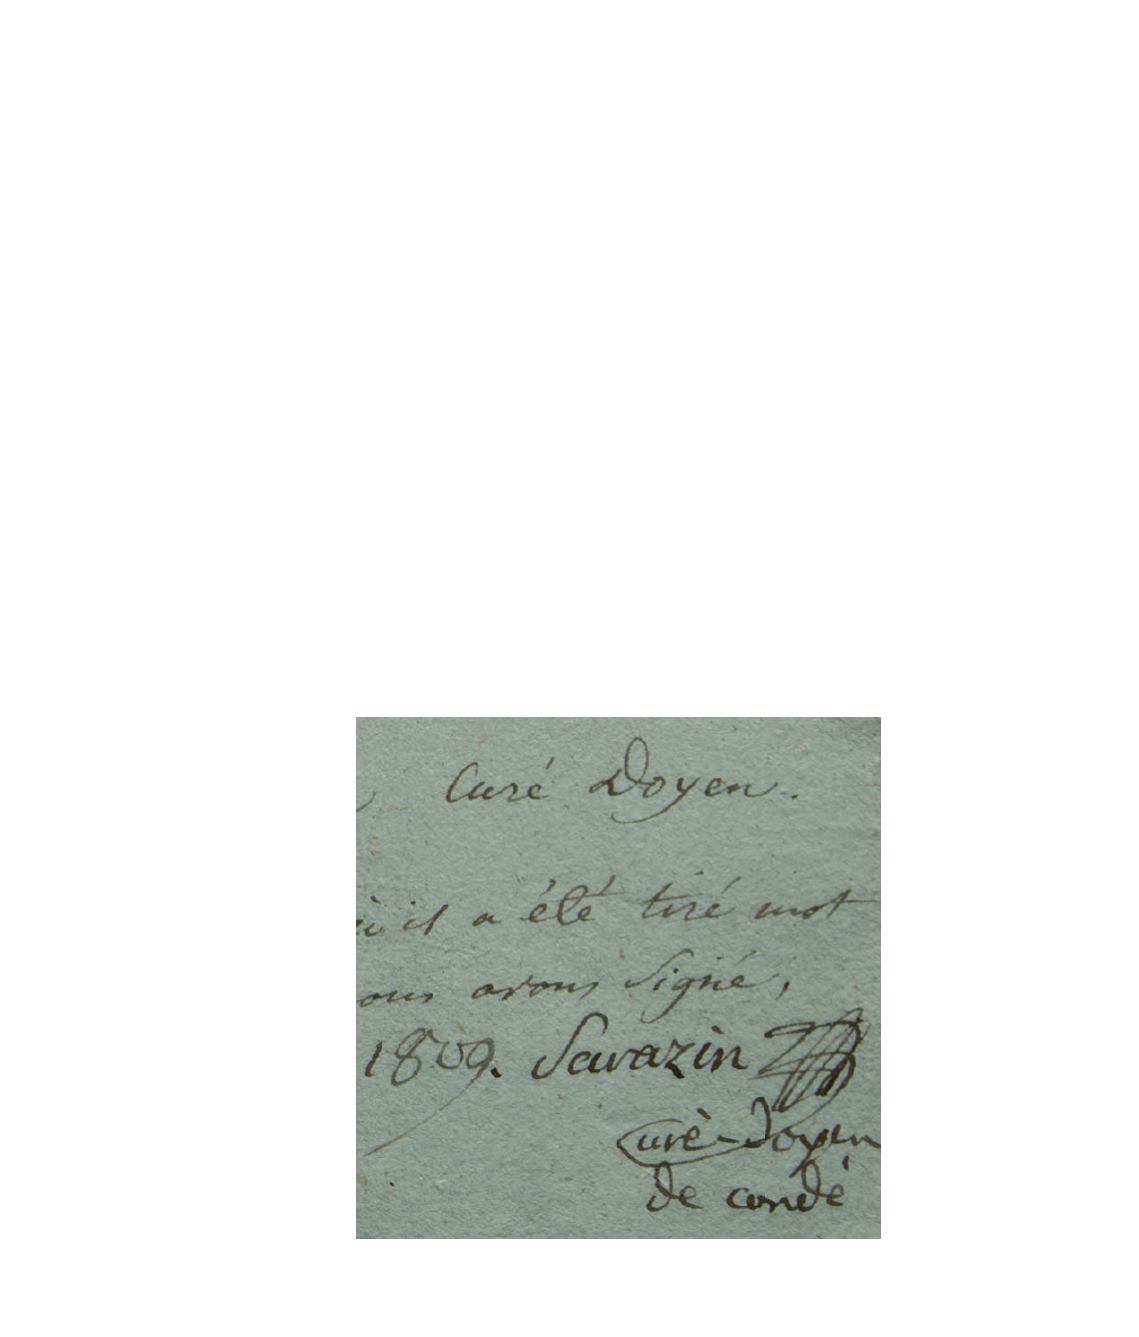 Curé Doyen.
il a été tiré mot
ous avons signé,
1809. Savazin
Curè-Doyen
de condé